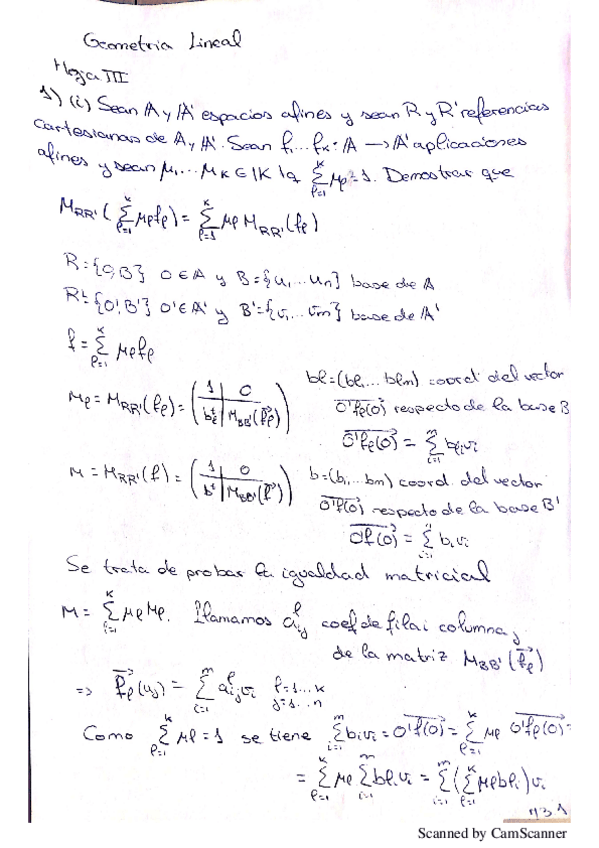 Geometria Lineal
Hoja III
1) (i) Sean A y A' espacios afines y sean R y R' referencias
cartesianas de A y A'. Sean f₁...fₖ: A → A' aplicaciones
afines y sean μ₁...μₖ ∈ K tq Σₗ₌₁ᵏ μₗ = 1. Demostrar que
M_RR'(Σₗ₌₁ᵏ μₗfₗ) = Σₗ₌₁ᵏ μₗ M_RR'(fₗ)
R = {O,B} O ∈ A y B = {u₁...uₙ} base de A
R' = {O',B'} O' ∈ A' y B' = {v₁...vₘ} base de A'
f = Σₗ₌₁ᵏ μₗfₗ
Mₗ = M_RR'(fₗ) = (1 | 0 / bₗᵗ | M_BB'(f⃗ₗ)) bl = (bl₁...blₘ) coord. del vector
O'fₗ(O) respecto de la base B
O'fₗ(O) = Σᵢ₌₁ᵐ blᵢvᵢ
M = M_RR'(f) = (1 | 0 / bᵗ | M_BB'(f⃗)) b = (b₁...bₘ) coord. del vector
O'f(O) respecto de la base B'
O'f(O) = Σᵢ₌₁ bᵢvᵢ
Se trata de probar la igualdad matricial
M = Σᵢ₌₁ᵏ μₗMₗ. Llamamos aᵢⱼˡ coef de fila i columna j
de la matriz M_BB'(f⃗ₗ)
⇒ f⃗ₗ(uⱼ) = Σᵢ₌₁ᵐ aᵢⱼˡvᵢ l=1...k j=1...n
Como Σₗ₌₁ᵏ μₗ = 1 se tiene Σᵢ₌₁ᵐ bᵢvᵢ = O'f(O) = Σₗ₌₁ᵏ μₗ O'fₗ(O) =
= Σₗ₌₁ᵏ μₗ Σᵢ₌₁ᵐ blᵢvᵢ = Σᵢ₌₁ᵐ (Σₗ₌₁ᵏ μₗblᵢ)vᵢ
Scanned by CamScanner